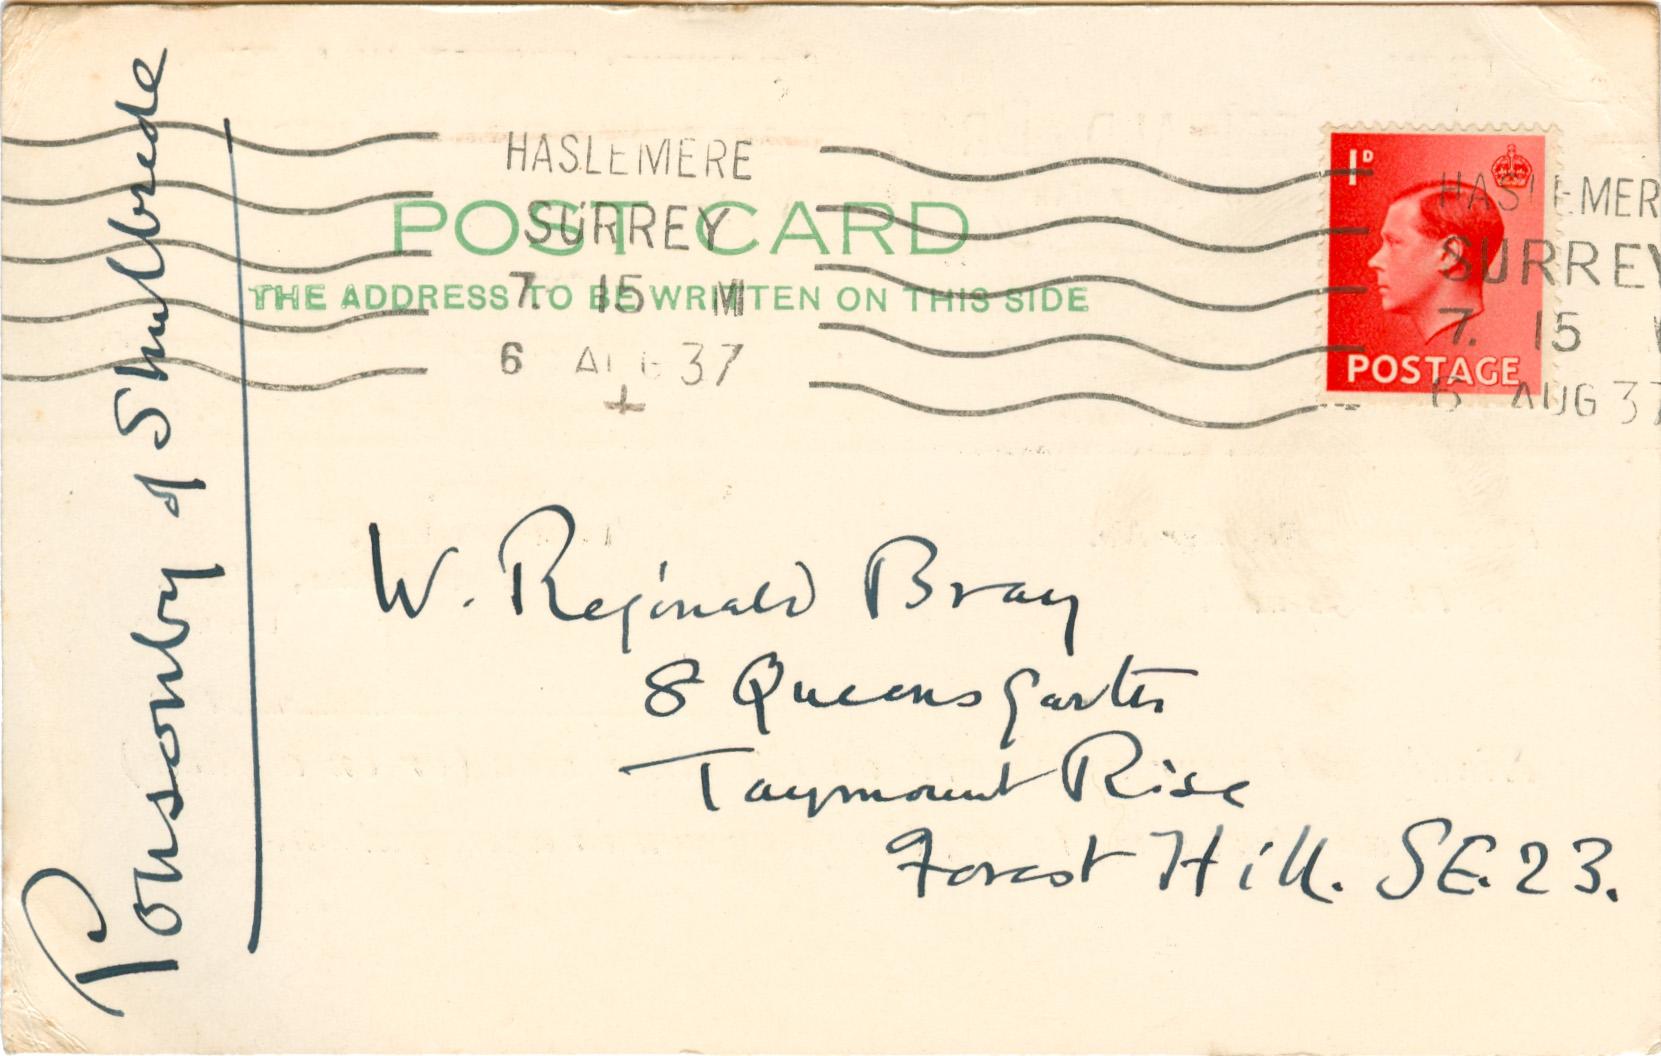 Ponsonby of Shulbrede
HASLEMERE
SURREY
7. 15 M
6 AUG 37
POST CARD
THE ADDRESS TO BE WRITTEN ON THIS SIDE
1D
POSTAGE
HASLEMER
SURREY
7. 15
6 AUG 37
W. Reginald Bray
8 Queens Garth
Taymount Rise
Forest Hill. SE.23.